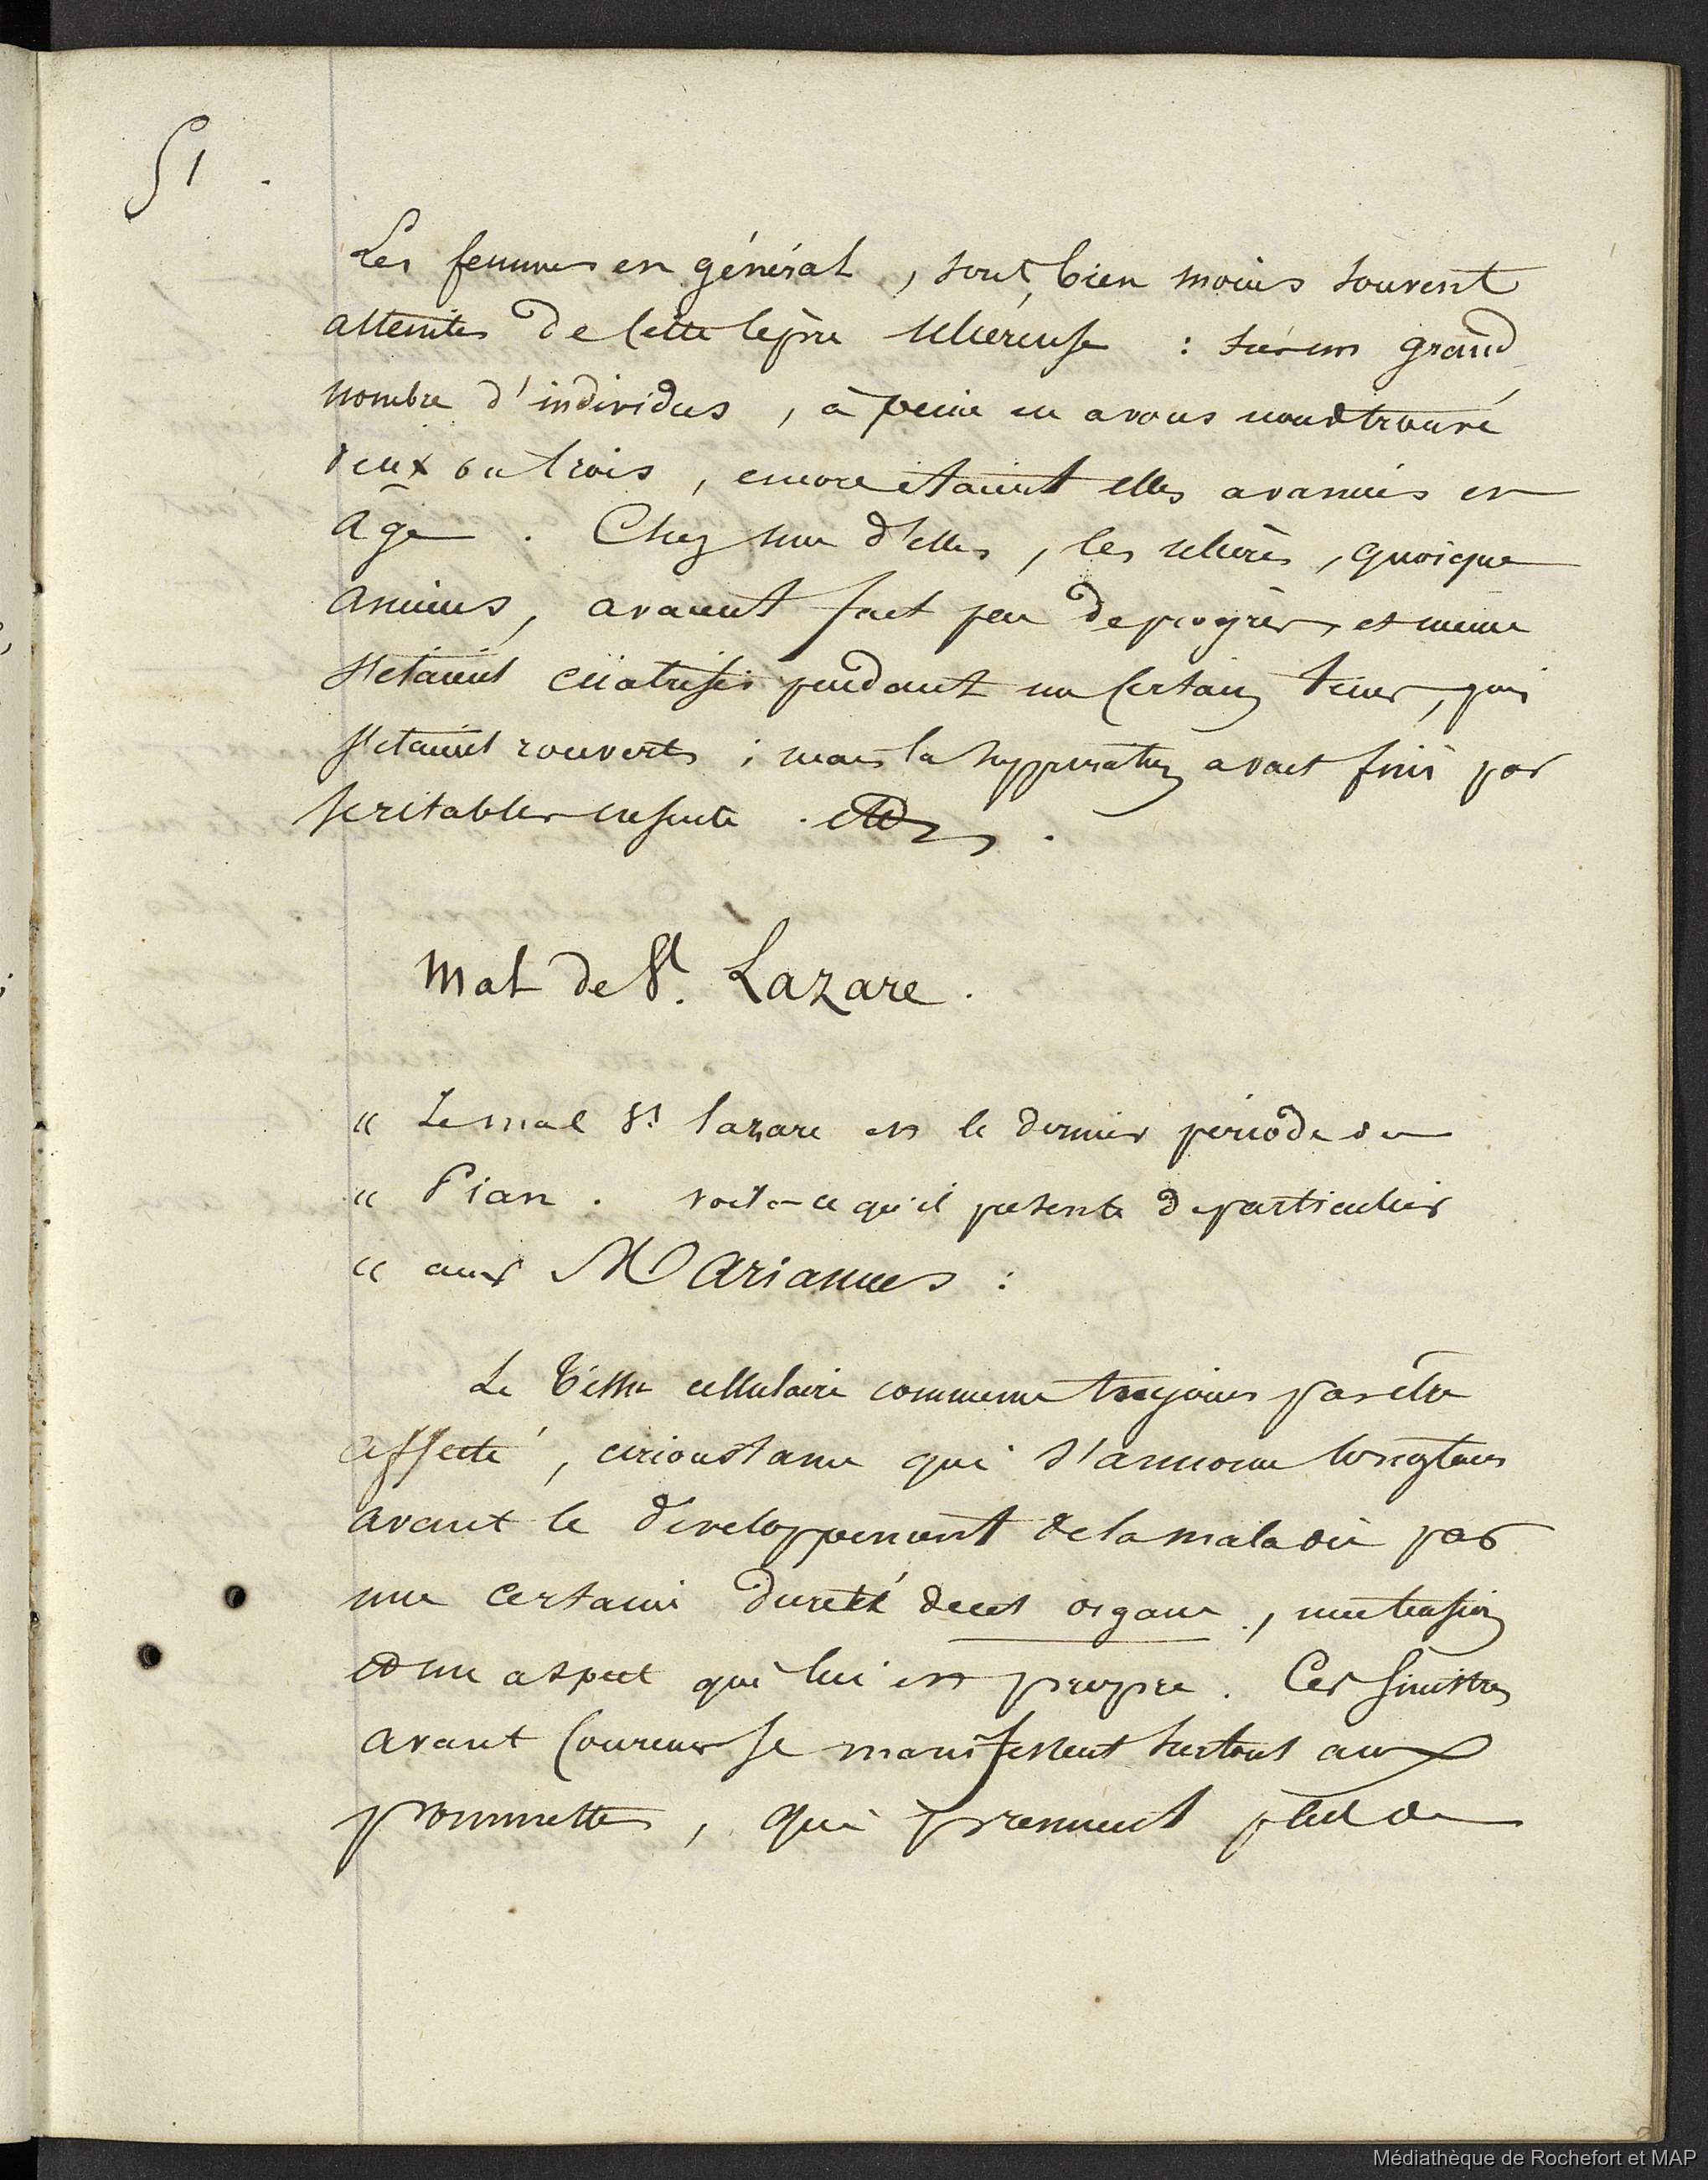 51.
Les femmes en général, sont, bien moins souvent
atteintes de cette lèpre ulcéreuse : sur un grand
nombre d'individus, à peine en avons nous trouvé
deux ou trois, encore étaient elles avancées en
age. Chez une d'elles, les ulcères, quoique
anciens, avaient fait peu de progrès, et même
s'étaient cicatrisés pendant un certain tems, puis
s'etaient rouverts ; mais la suppuration avait fini par
s'établir ensuite.
Mal de St. Lazare.
" Le mal St lazare est le dernier période du
" Pian. voilà ce qu'il présente de particulier
" aux Mariannes :
Le tissu cellulaire commence toujours par être
affecté, circonstance qui s'annonce longtems
avant le développement de la maladie par
une certaine dureté de cet organe, une tension
et un aspect qui lui est propre. Ces sinistres
avant coureurs se manifestent surtout aux
pommettes, qui prennent plus de
Médiathèque de Rochefort et MAP